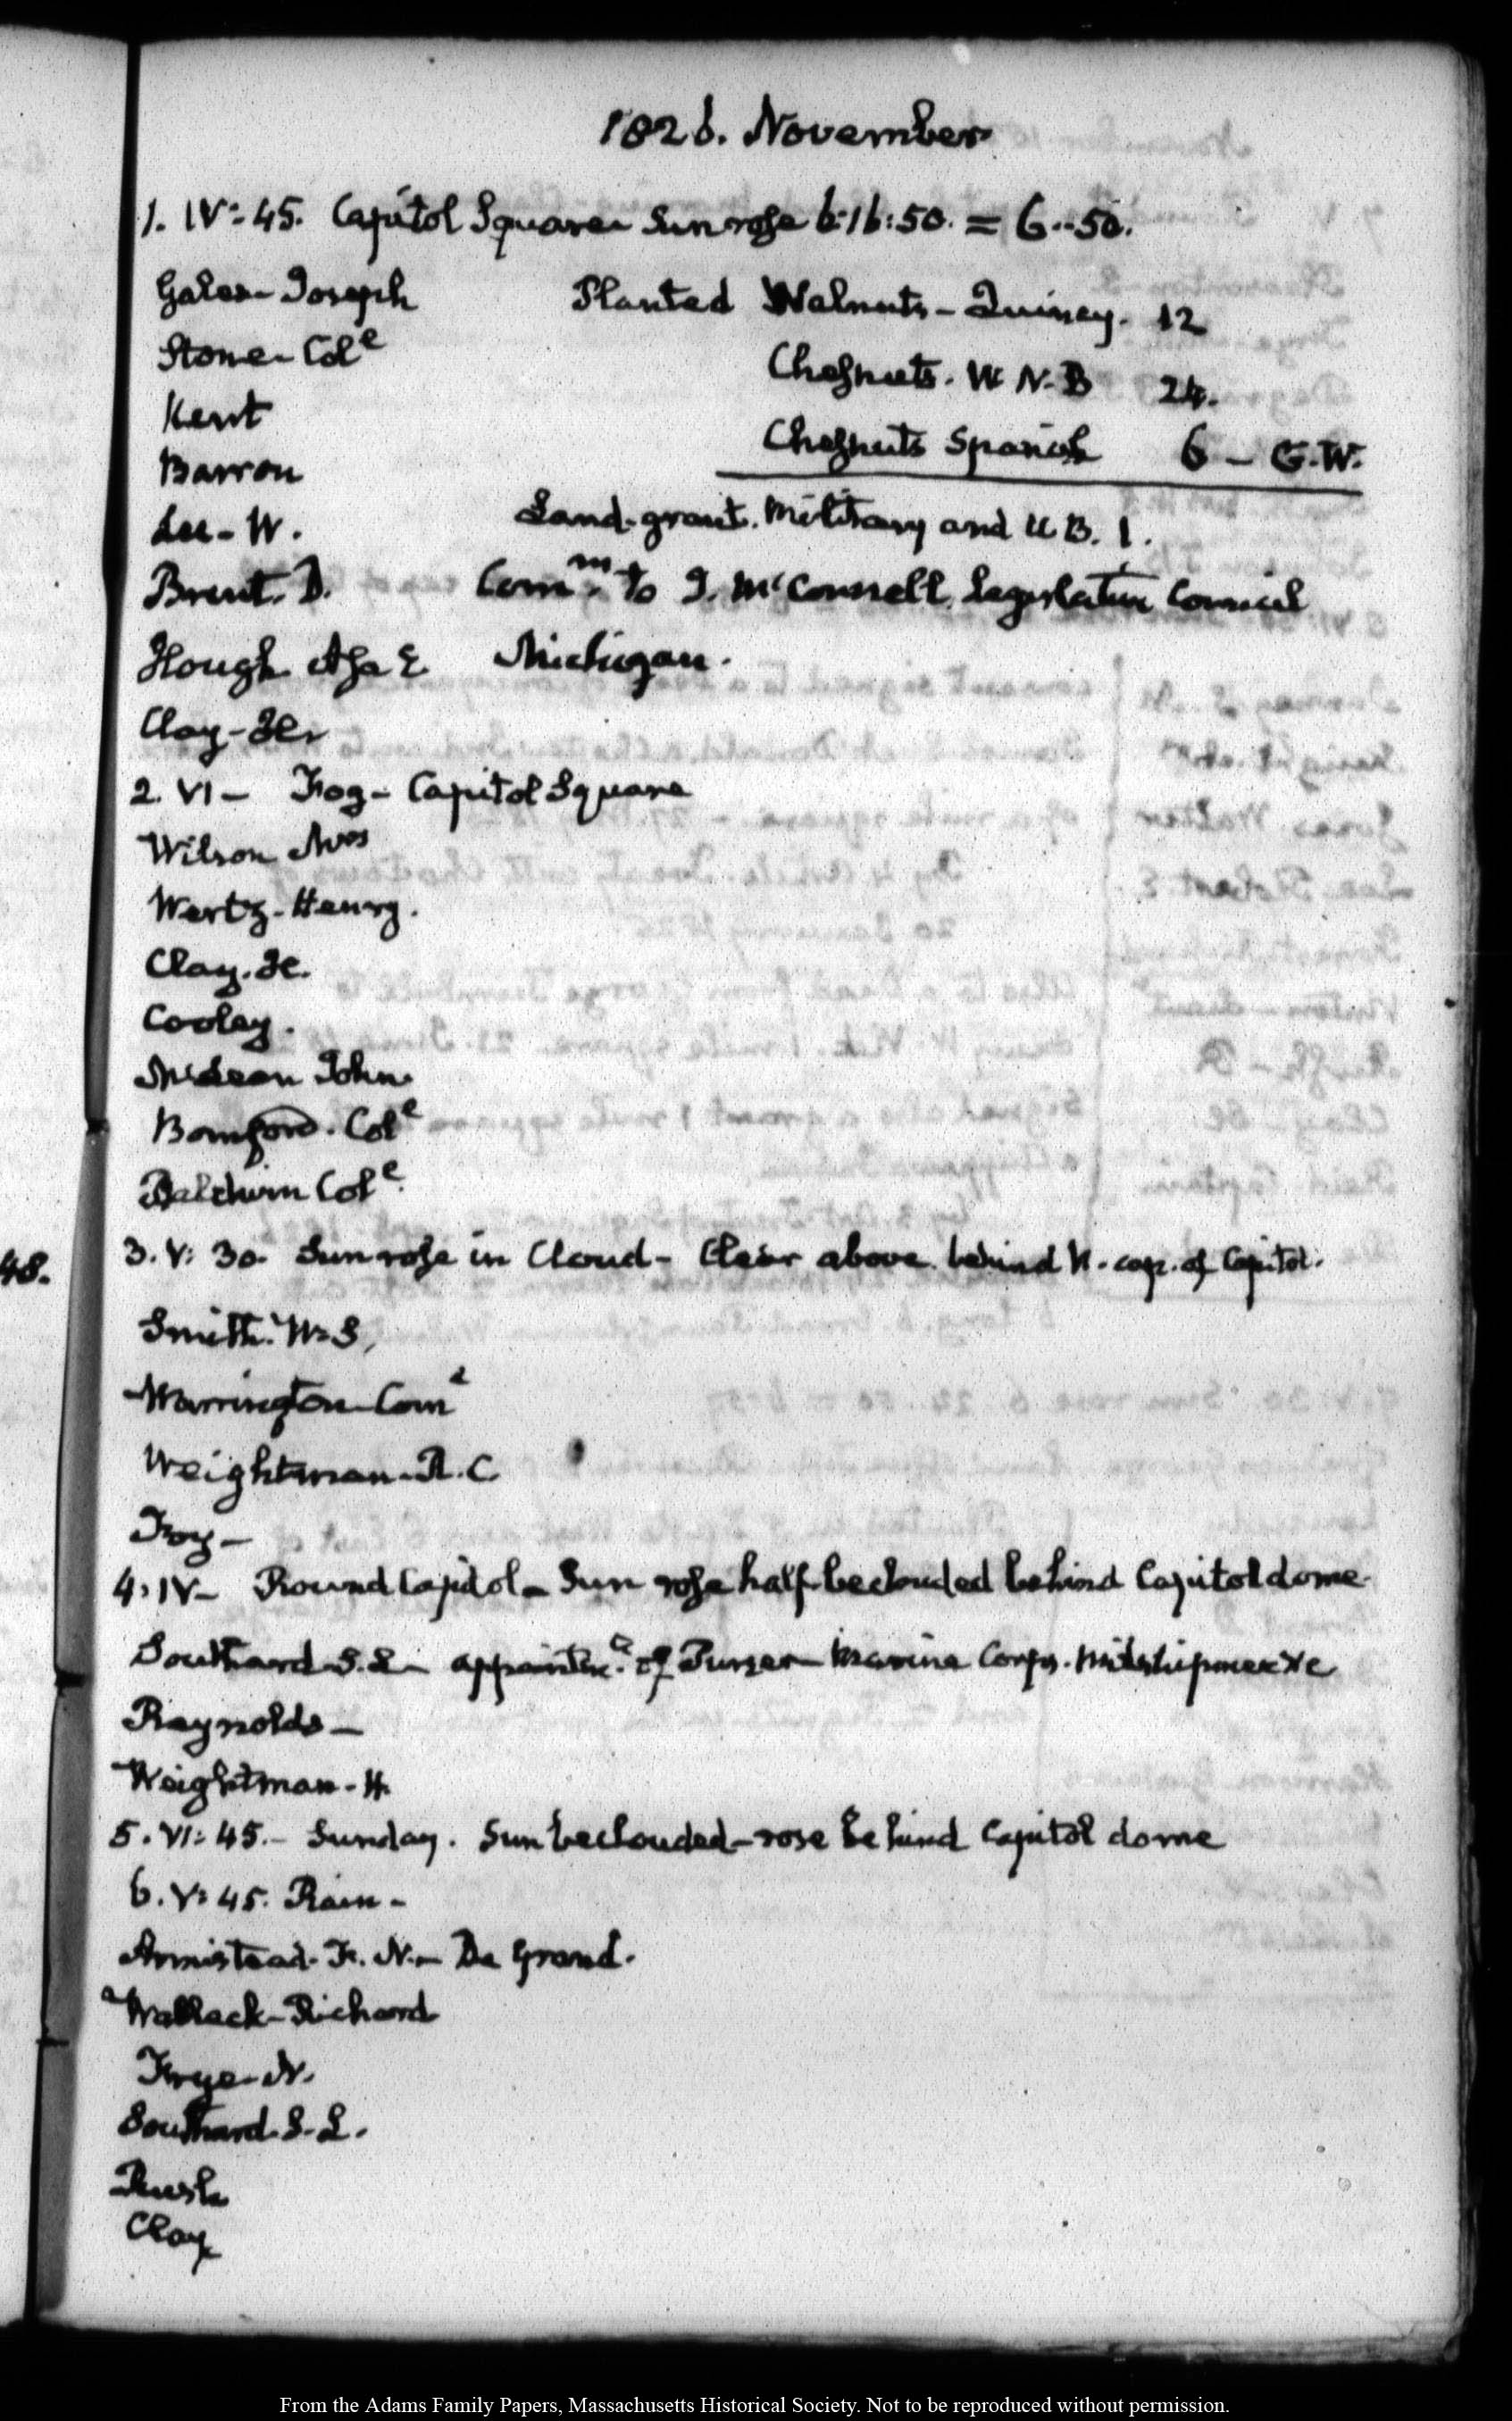 1826. November
1. IV: 45. Capitol Square Sun rose 6:16:50. = 6..50.
Gales. Joseph Planted Walnuts - Quincy. 12
Stone - Col.
Chesnuts. W. N. B 24.
Kent
Chesnuts Spanish 6 - G. W.
Barron
Lee - W. Land-grant. Military and U B. 1.
Brent. D. Comm.n to J. McConnell Legislative Council
Hough Asa E Michigan.
Clay - H.
2. VI - Fog - Capitol Square
Wilson Mrs
Wertz - Henry.
Clay. H.
Cooley.
McLean John
Bomford. Col.
Baldwin Col.
48.
3. V: 30. Sun rose in Cloud - Clear above behind N. cop. of Capitol.
Smith. W. S.
Warrington Com
Weightman - R. C
Foy -
4. IV - Round Capitol - Sun rose half beclouded behind Capitol dome
Southard S. L - of Purser - Marine Corps. Midshipmen &c
Reynolds -
Weightman - H.
5. VI: 45. - Sunday. Sun beclouded - rose behind Capitol dome
6. V: 45. Rain -
Armistead. F. N. - De Grand.
Wallack - Richard
Frye - N.
Southard. S. L.
Rush
Clay
From the Adams Family Papers, Massachusetts Historical Society. Not to be reproduced without permission.